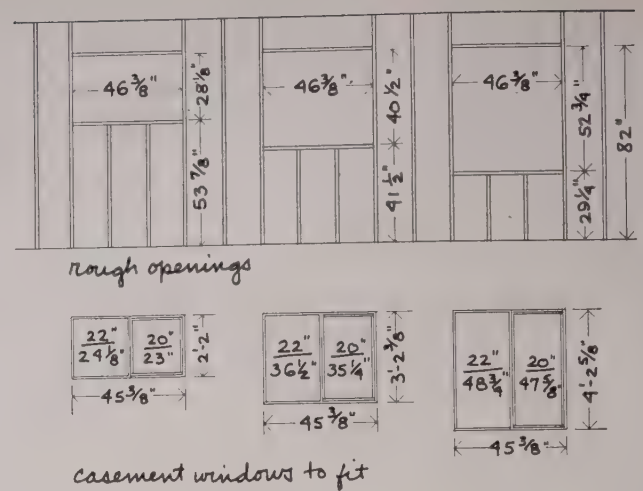 46 3/8"
28 1/8"
53 7/8"
46 3/8"
40 1/2"
41 1/2"
46 3/8"
52 3/4"
29 1/4"
82"
rough openings
22"
24 1/8"
20"
23"
2'-2"
45 3/8"
22"
36 1/2"
20"
35 1/4"
3'-2 3/8"
45 3/8"
22"
48 3/4"
20"
47 5/8"
4'-2 5/8"
45 3/8"
casement windows to fit